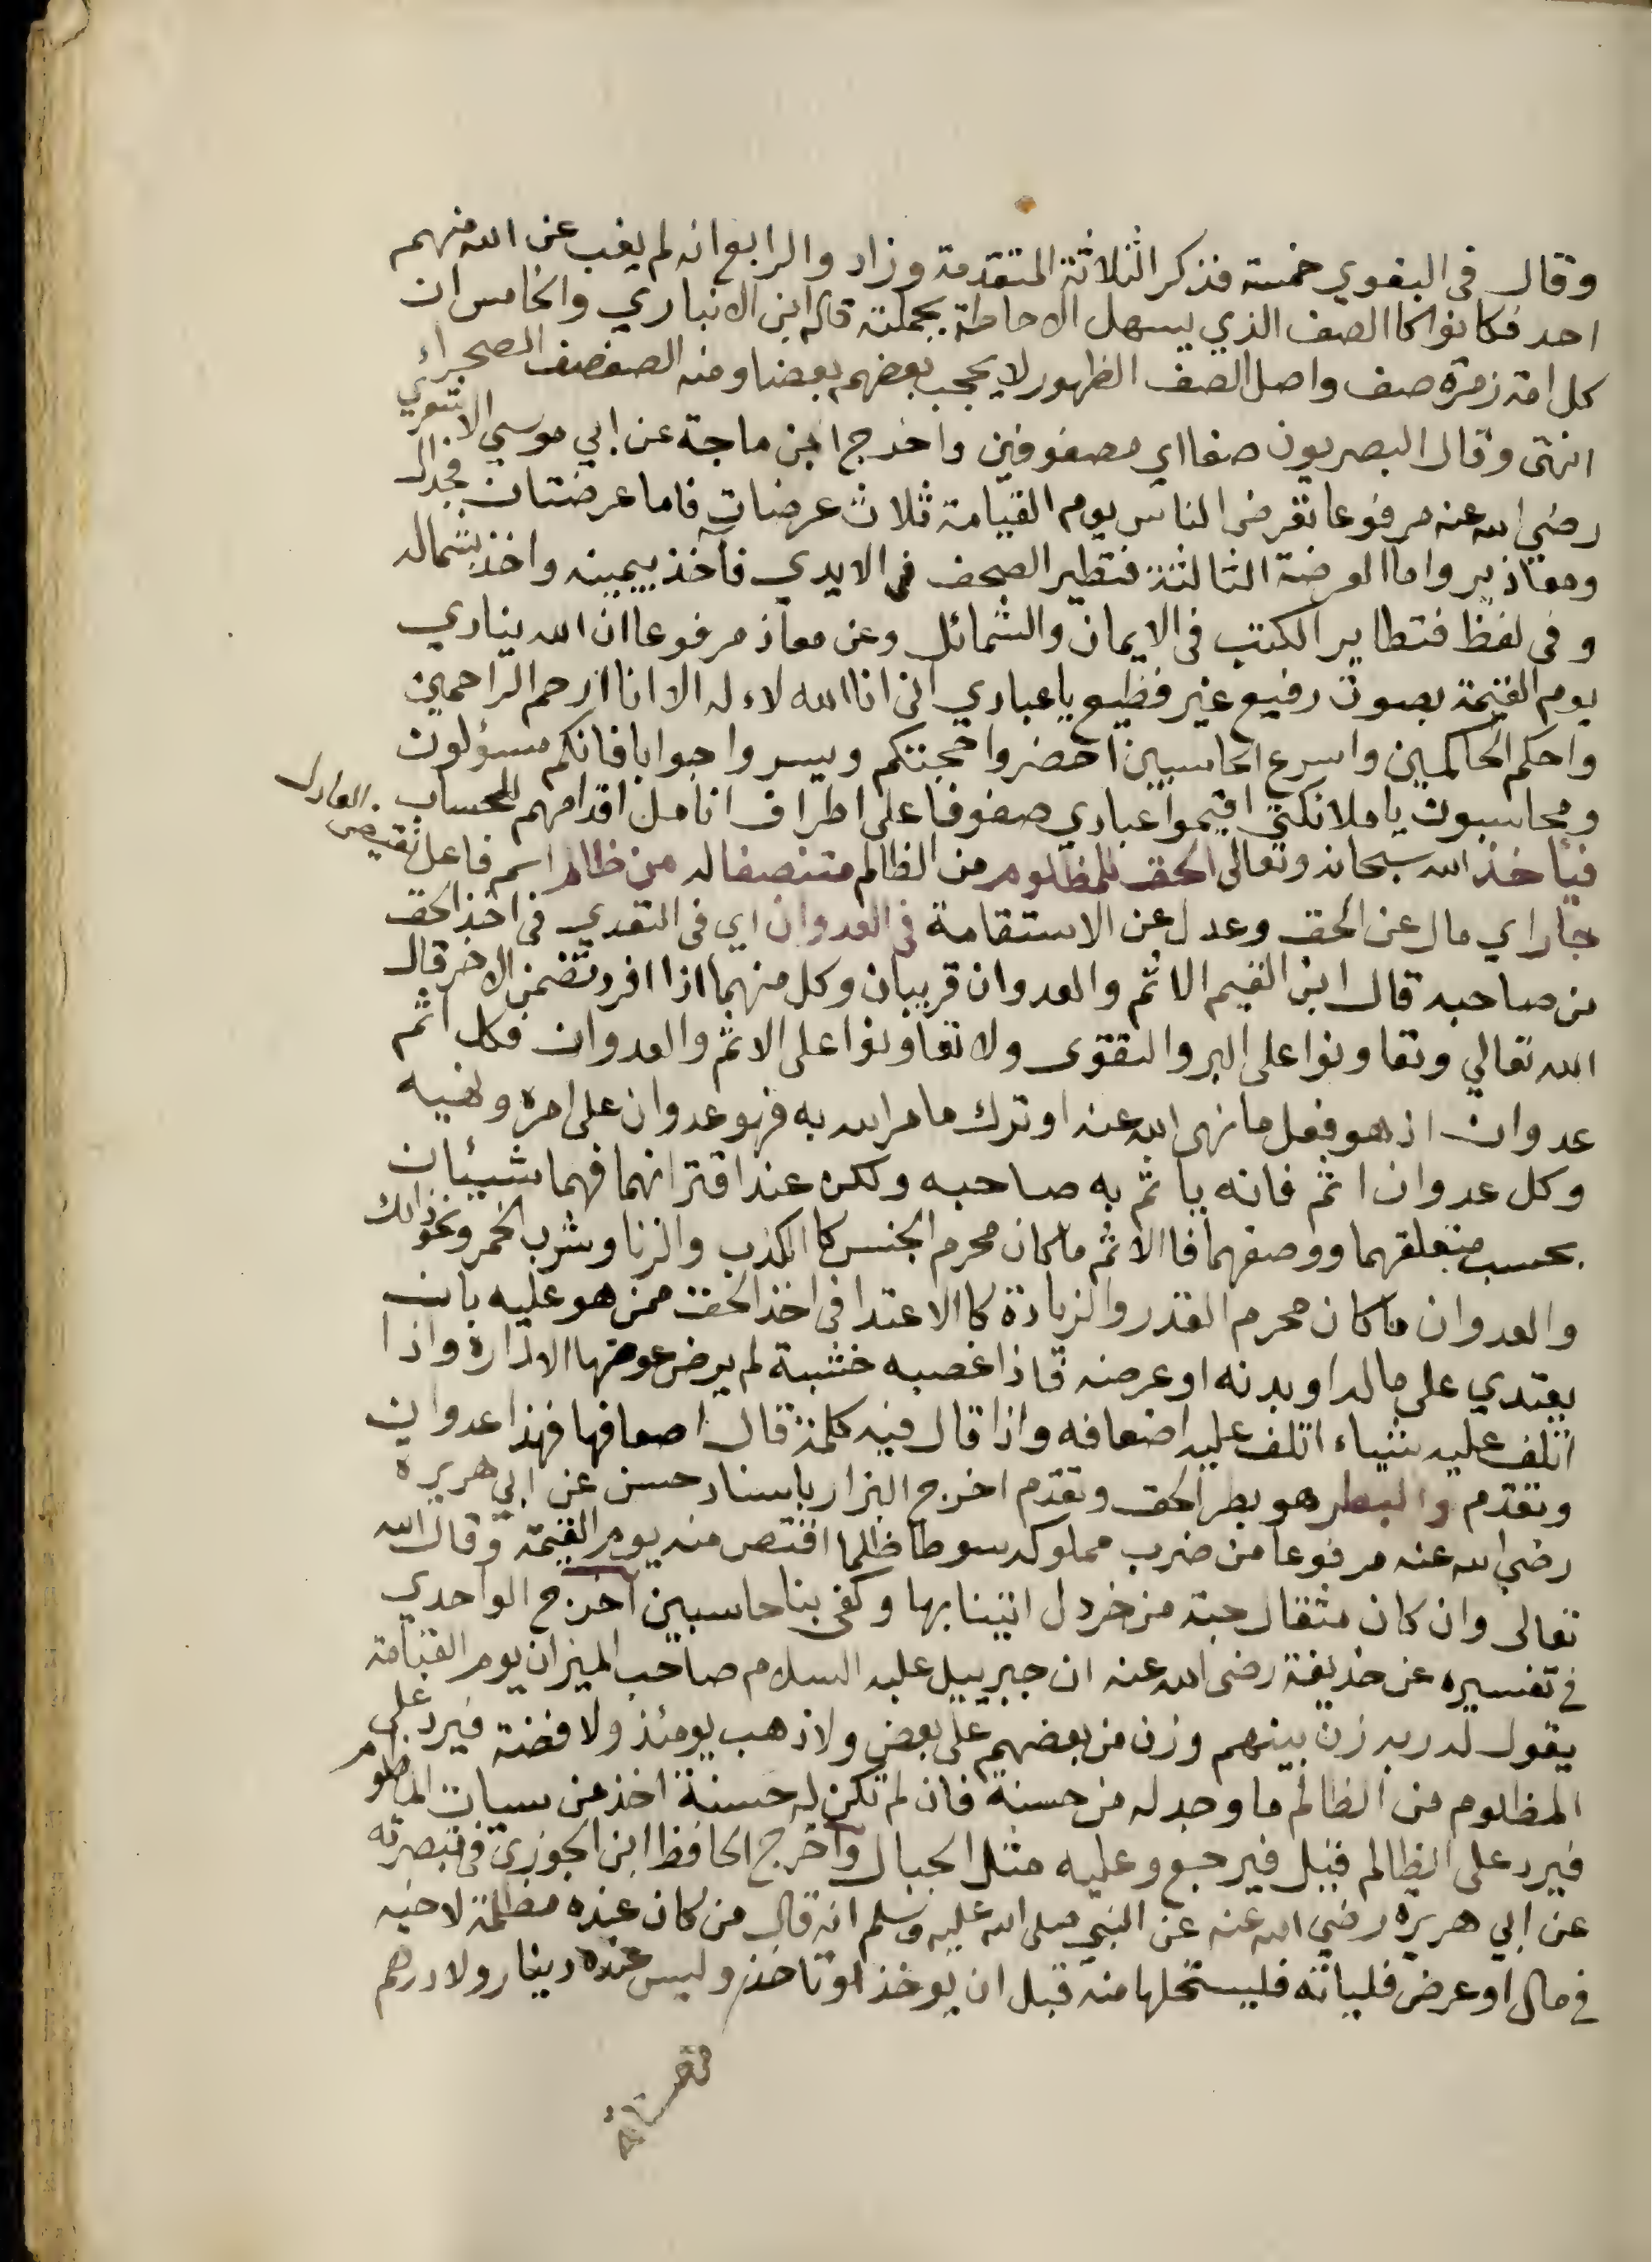 وقال في البغوي خمسة فذكر الثلاثة المتقدمة وزاد والرابع انه لم يغب عن الله منهم
احد فكانوا كالصف الذي يسهل الاحاطة بجملته قاله ابن الانباري والخامس ان
كل امة زمرة صف واصل الصف الظهور لا يحجب بعضهم بعضا ومنه الصفصف الصحراء
انتهى وقال البصريون صفا اي مصفوفين واخرج ابن ماجة عن ابي موسي الاشعري
رضي الله عنه مرفوعا تعرض الناس يوم القيامة ثلاث عرضات فاما عرضتان فجدال
ومعاذير واما العرضة الثالثة فتطير الصحف في الايدي فآخذ بيمينه واخذ بشماله
وفي لفظ فتطاير الكتب في الايمان والشمائل وعن معاذ مرفوعا ان الله ينادي
يوم القيمة بصوت رفيع غير فظيع يا عبادي انى انا الله لاءله الا انا ارحم الراحمين
واحكم الحاكمين واسرع الحاسبين احضروا حجتكم ويسروا جوابا فانكم مسؤلون
ومحاسبون يا ملائكتي اقيموا عبادي صفوفا على اطراف انامل اقدامهم للحساب
فيأخذ الله سبحانه وتعالى الحق للمظلوم من الظالم متنصفا له من ظالم اسم فاعل نقيض العادل
جار اي مال عن الحق وعدل عن الاستقامة في العدوان اي في التعدي في اخذ الحق
من صاحبه قال ابن القيم الاثم والعدوان قريبان وكل منهما اذا افرد تضمن الاخر قال
الله تعالي وتعاونوا على البر والتقوى ولا تعاونوا على الاثم والعدوان فكل اثم
عدوان اذ هو فعل ما نهى الله عنه او ترك ما امر الله به فهو عدوان على امره ونهيه
وكل عدوان اثم فانه ياثم به صاحبه ولكن عند اقترانهما فهما شيئان
بحسب متعلقهما ووصفهما فاالاثم ما كان محرم الجنس كاالكذب والزنا وشرب الخمر ونحو ذالك
والعدوان ما كان محرم القدر والزيادة كاالاعتدا في اخذ الحق ممن هو عليه بان
يعتدي على ماله او بدنه او عرضه فاذا غصبه خشبة لم يرض عوضها الا داره واذا
اتلف عليه شياء اتلف عليه اضعافه واذا قال فيه كلمة قال اضعافها فهذا عدوان
وتقدم والبطر هو بطر الحق وتقدم اخرج البزار باسناد حسن عن ابي هريرة
رضي الله عنه مرفوعا من ضرب مملوكه سوطا ظلما اقتص منه يوم القيمة وقال الله
تعالى وان كان مثقال حبة من خردل اتينا بها وكفى بنا حاسبين اخرج الواحدي
في تفسيره عن حذيفة رضى الله عنه ان جبرييل عليه السلام صاحب الميزان يوم القيامة
يقول له ربه زن بينهم وزن من بعضهم على بعض ولا ذهب يومئذ ولا فضة فيرد على
المظلوم من الظالم ما وجد له من حسنة فان لم تكن له حسنة اخذ من سيات المظلوم
فيرد على الظالم قبل فيرجع وعليه مثل الجبال واخرج الحافظ ابن الجوزي في تبصرته
عن ابي هريره رضي الله عنه عن النبي صلى الله عليه وسلم انه قال من كان عنده مظلمة لاخيه
في مال او عرض فلياته فليستحلها منه قبل ان يوخذ او تاخذ وليس عنده دينار ولا درهم